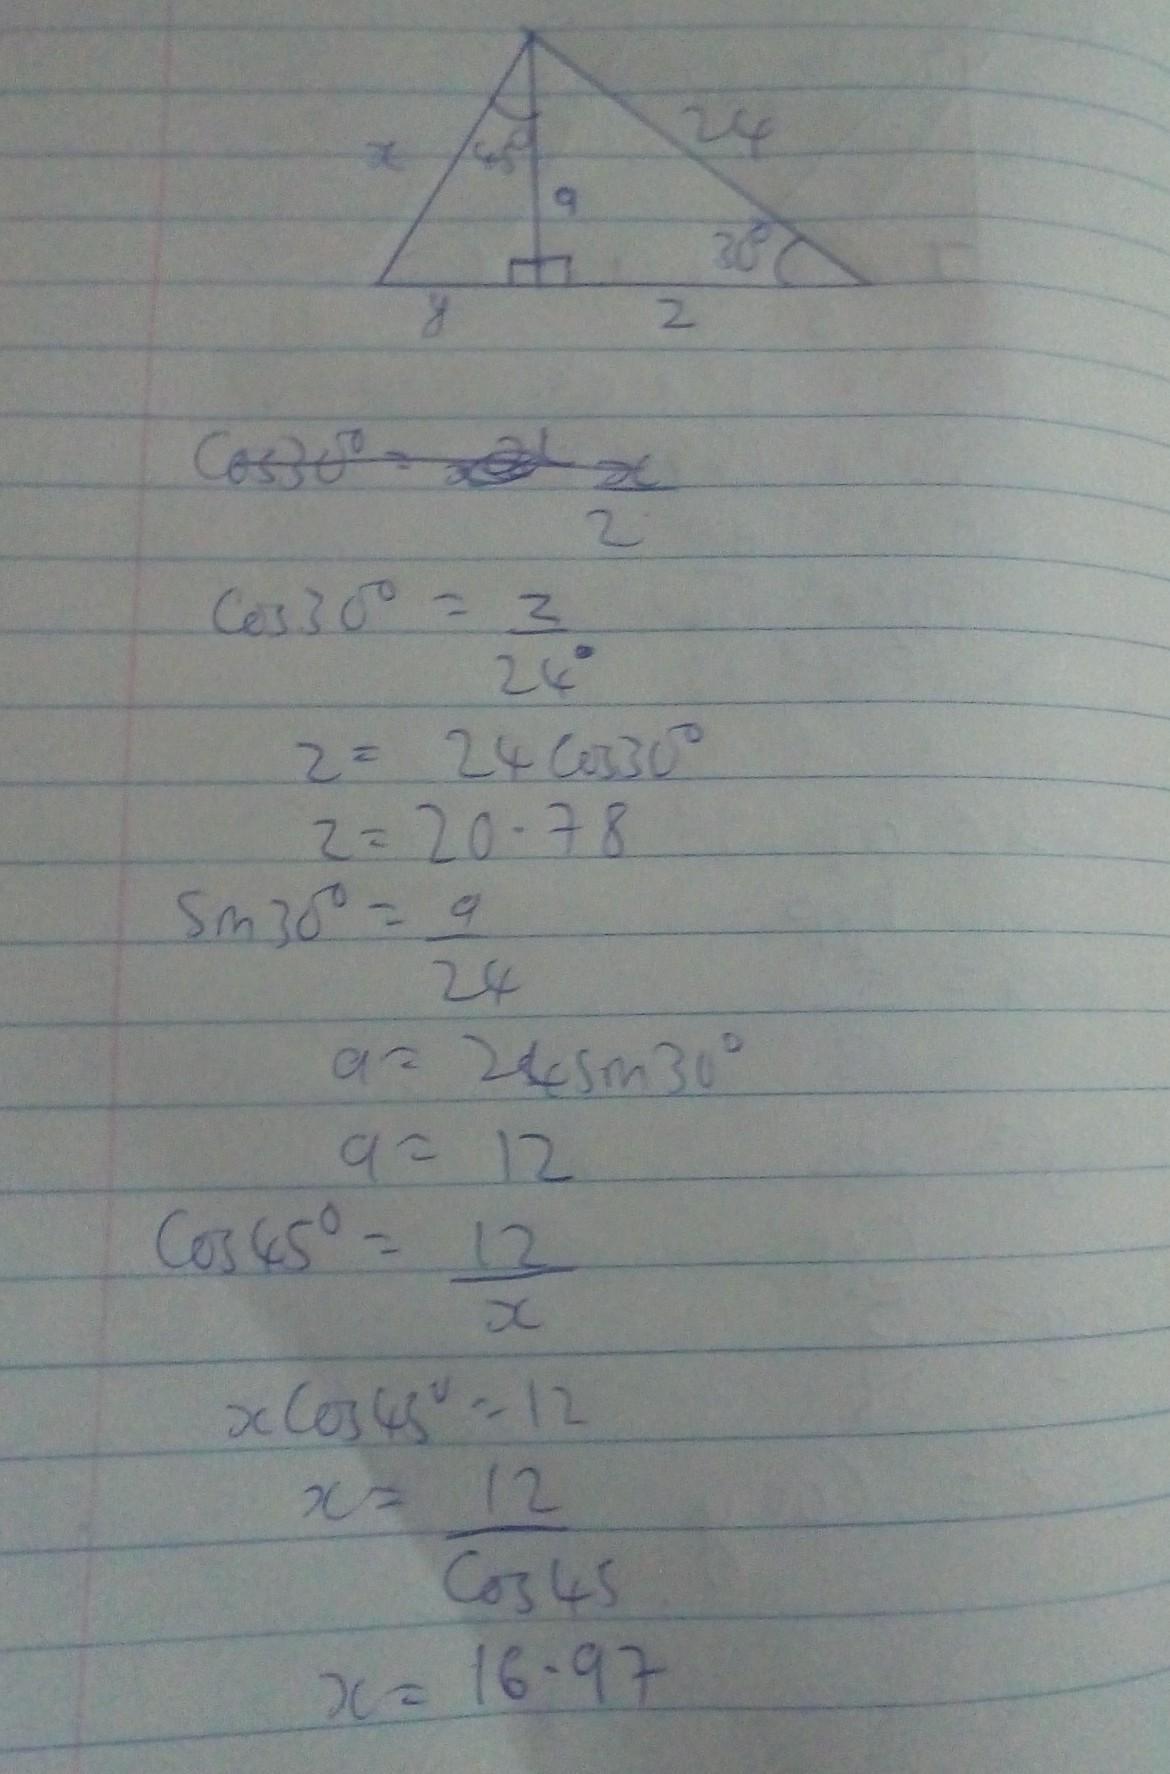 x 45° 24
a
30°
y z
Cos30° = x
2
Cos30° = z
24°
z = 24Cos30°
z = 20.78
Sin30° = a
24
a = 24Sin30°
a = 12
Cos45° = 12
x
xCos45° = 12
x = 12
Cos45
x = 16.97